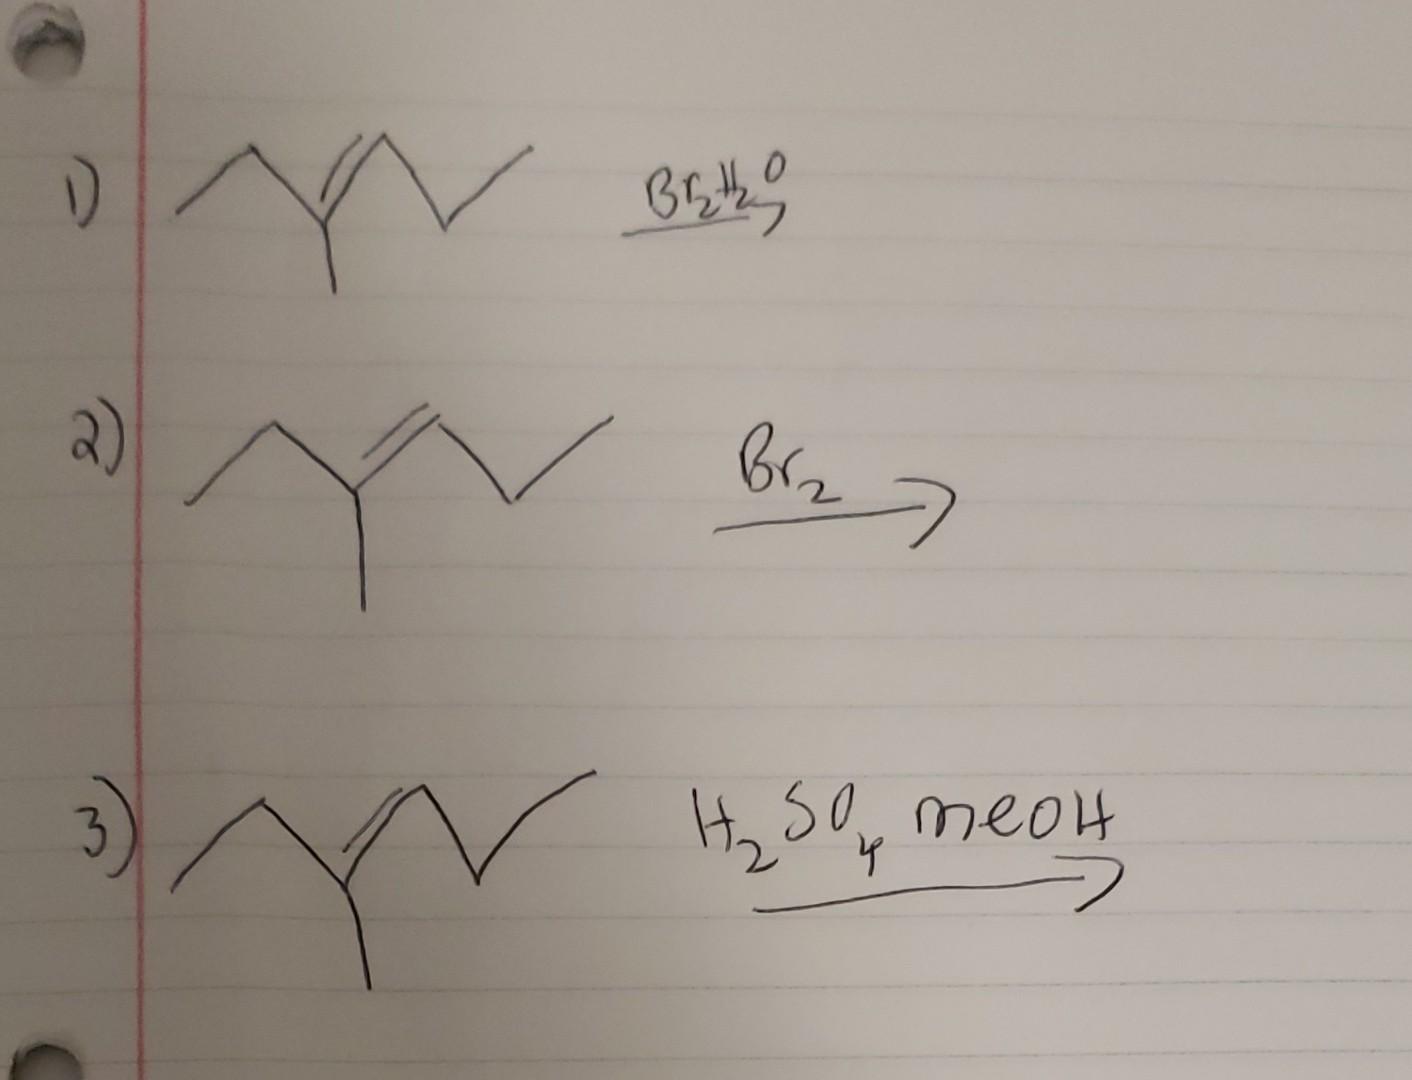 1) Br₂H₂O
2) Br₂
3) H₂SO₄ meOH